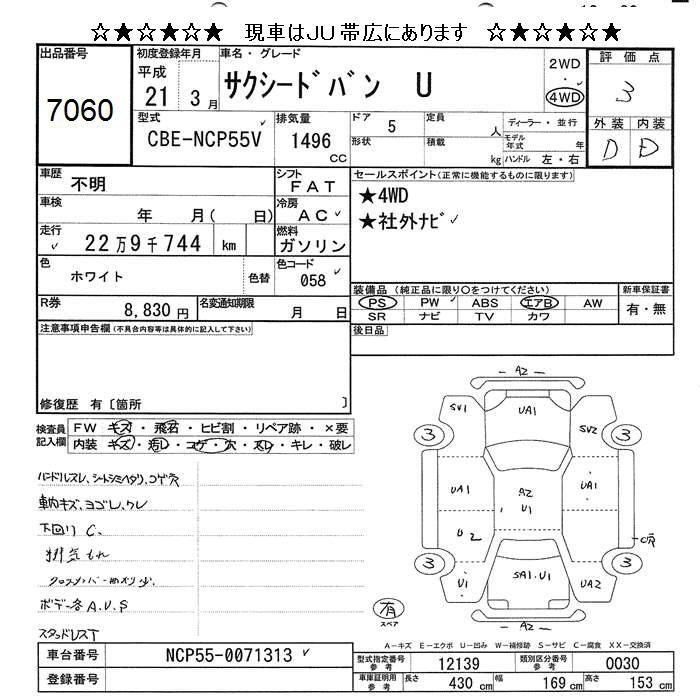 ☆★☆★☆★ 現車はJU帯広にあります ☆★☆★☆★
出品番号
7060
初度登録年月
平成
21 3月
車名・グレード
サクシードバン U
2WD
・
4WD
評価点
3
外装 内装
D D
型式
CBE-NCP55V
排気量
1496
CC
ドア
5
形状
定員
人
積載
kg
ディーラー・並行
モデル年式
年
ハンドル 左・右
車歴
不明
シフト
FAT
車検
年 月( 日)
冷房
AC
走行
22万9千744 km
燃料
ガソリン
色
ホワイト
色替
色コード
058
R券
8,830円
名変通知期限
月 日
セールスポイント(正常に機能するものに限ります)
★4WD
★社外ナビ
装備品 (純正品に限り〇をつけてください)
PS PW ABS エアB AW
SR ナビ TV カワ
新車保証書
有・無
後日品
注意事項申告欄(不具合内容等は具体的に記入して下さい)
修復歴 有〔箇所 〕
検査員記入欄
FW キズ・飛石・ヒビ割・リペア跡・×要
内装 キズ・汚レ・コゲ・穴・スレ・キレ・破レ
ハンドルスレ、シートシミヘタリ、コゲ穴
車内キズ、ヨゴレ、ワレ
下回りC、
排気もれ
ボデー各A.U.S
スタッドレスT
A2
SV1
UA1
SV2
3
3
UA1
A2
U1
UA1
U2
C穴
3
3
U1
SA1.U1
UA2
A2
有
スペア
A-キズ E-エクボ U-凹み W-補修跡 S-サビ C-腐食 XX-交換済
車台番号
NCP55-0071313
登録番号
型式指定番号
参考
12139
類別区分番号
参考
0030
車庫証明用
参考
長さ 430 cm 幅 169 cm 高さ 153 cm